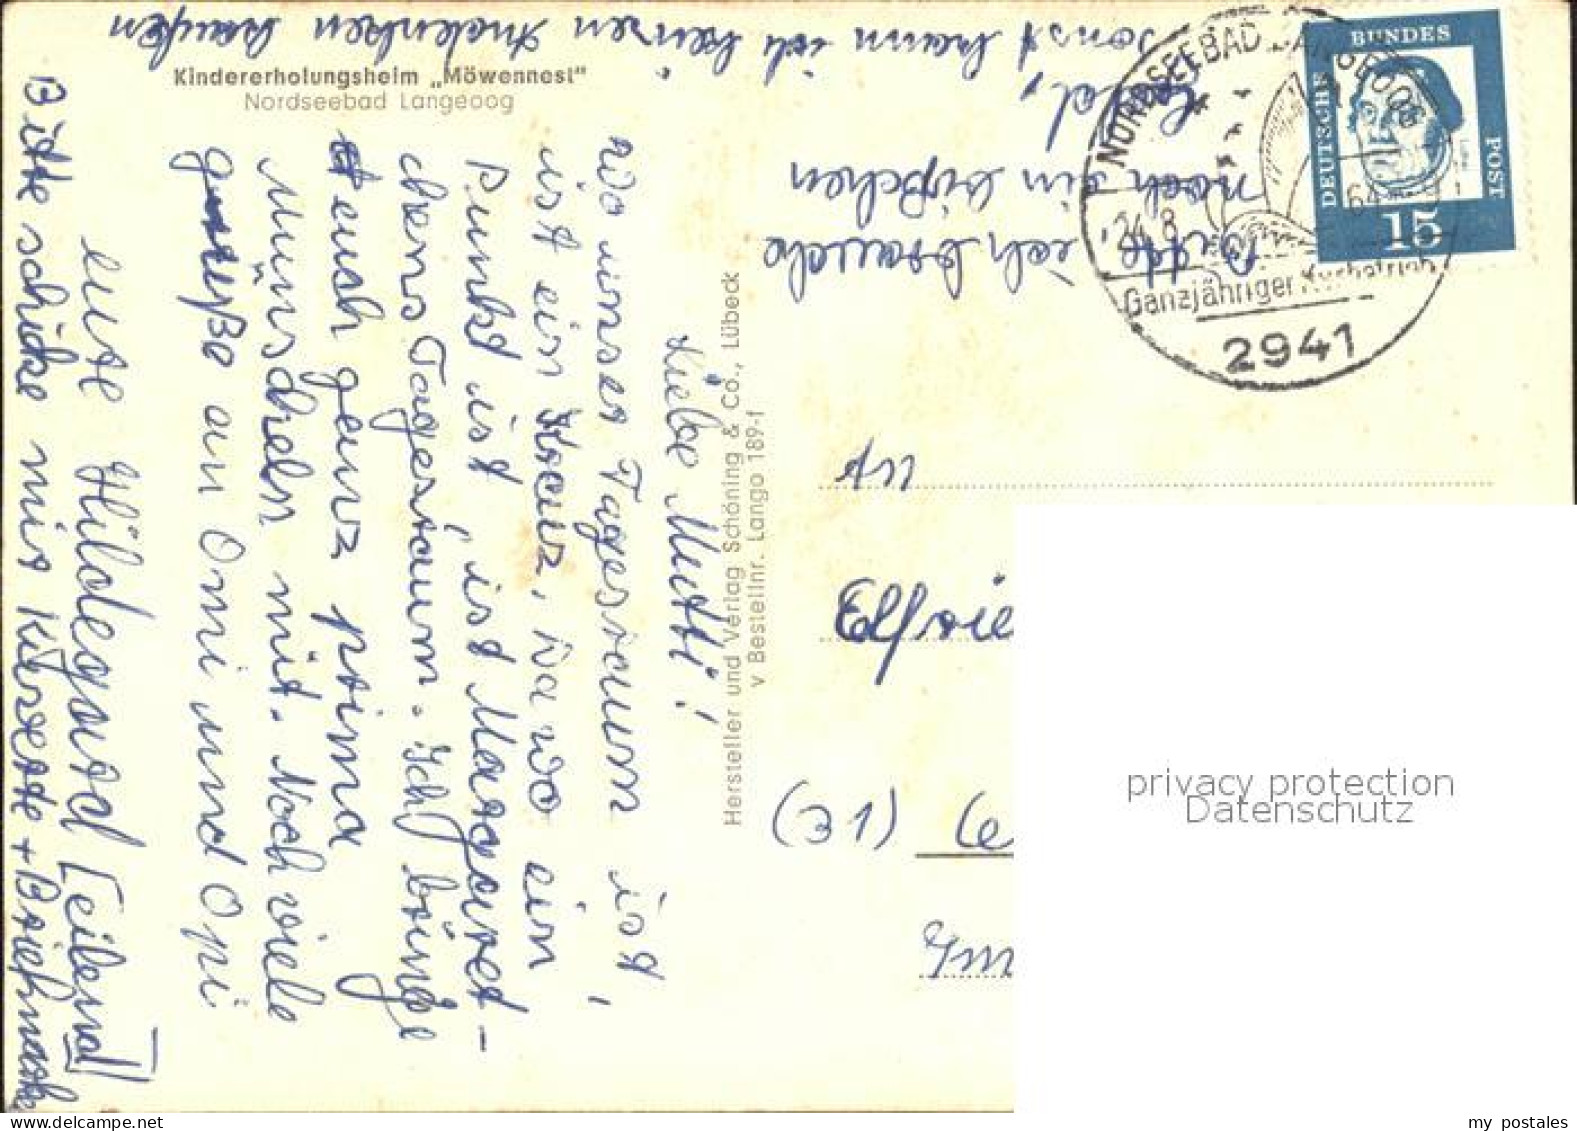 Kindererholungsheim „Möwennest"
Nordseebad Langeoog
Liebe Mutti!
Wo unser Tagesraum ist,
ist ein Kreuz, Da wo ein
Punkt ist, ist Margaret-
chens Tagesraum. Ich bringe
euch ganz prima
Münscheln mit. Noch viele
Grüße an Omi und Opi
eure Hildegard
Bitte schicke mir Karte + Briefmark
Bitte, ich brauche
noch ein bißchen
Geld,
sonst kann ich keinen Andenken kaufen
Hersteller und Verlag Schöning & Co., Lübeck
v Bestellnr. Lango 189-1
NORDSEEBAD LANGEOOG
24.8.
64
Ganzjähriger Kurbetrieb
2941
DEUTSCHE
BUNDES
POST
15
An
Elfrie
(31) Ce
privacy protection
Datenschutz
my postales